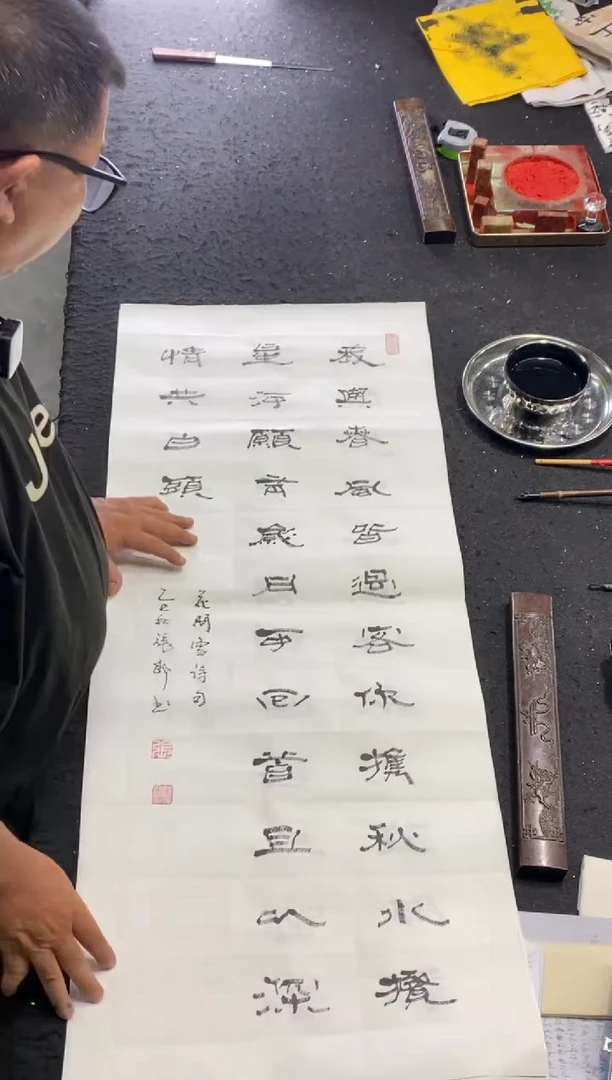 我與春風皆過客你攜秋水攬
星河願有歲月可回首且以深
情共白頭
詩句
乙巳秋張 書